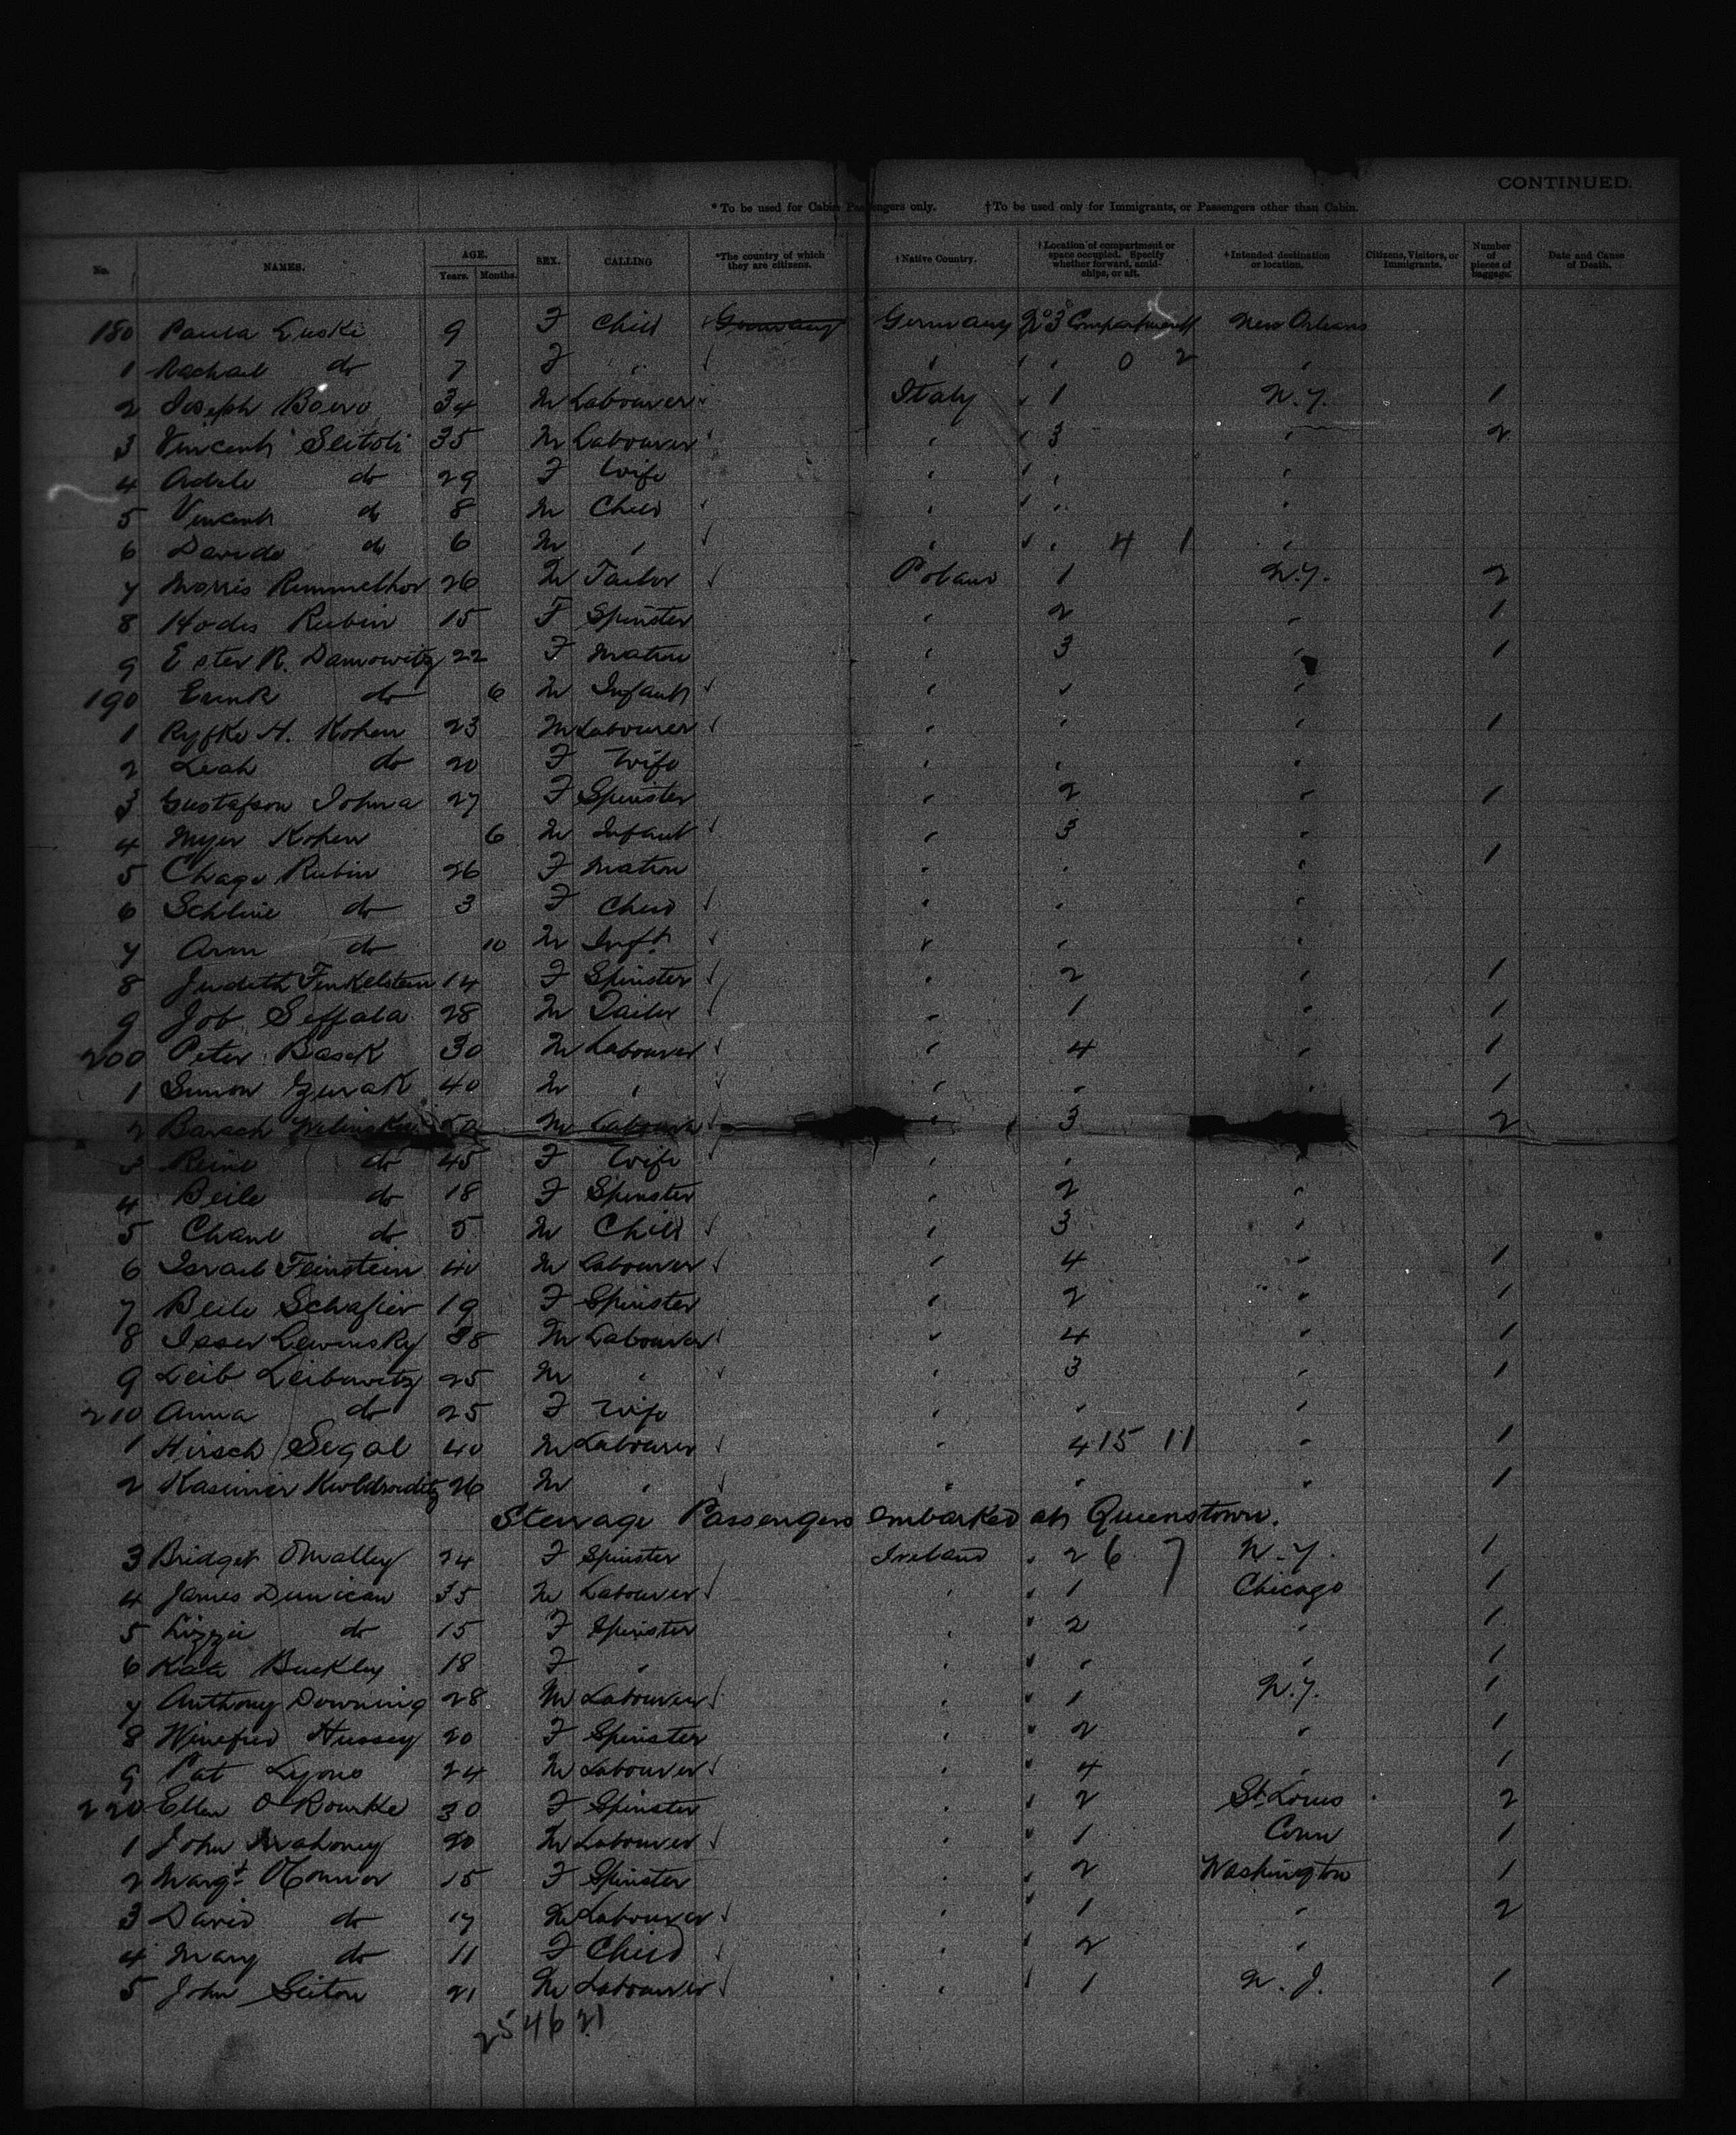 CONTINUED.
* To be used for Cabin Passengers only. † To be used only for Immigrants, or Passengers other than Cabin.
No. NAMES. AGE. Years. Months. SEX. CALLING *The country of which they are citizens. † Native Country. † Location of compartment or space occupied. Specify whether forward, amidships, or aft. † Intended destination or location. Citizens, Visitors, or Immigrants. Number of pieces of baggage. Date and Cause of Death.
180 Paula Luski 9 F Child Germany Germany No 3 Compartment New Orleans
1 Rachael do 7 F " " " 0 2 "
2 Joseph Boero 34 M Labourer Italy " 1 N.Y. 1
3 Vincent 35 M Labourer " " 3 " 2
4 Adele do 29 F Wife " " " "
5 Vincent do 8 M Child " " " "
6 Davide do 6 M " " " " 4 1 "
7 Morris 26 M Tailor Poland 1 N.Y. 2
8 Hodes Rubin 15 F Spinster " 2 " 1
9 Ester R. Damowitz 22 F Matron " 3 " 1
190 do 6 M Infant " " "
1 Ryfke H. Kohen 23 M Labourer " " " 1
2 Leah do 20 F Wife " " "
3 Gustafson Johna 27 F Spinster " 2 " 1
4 Myer Kohen 6 M Infant " 3 "
5 Chage Rubin 26 F Matron " " " 1
6 do 3 F Child " " "
7 Aron do 10 M Inft " " "
8 Judith Finkelstein 14 F Spinster " 2 " 1
9 Job Seffala 28 M Tailor " 1 " 1
200 Peter Basek 30 M Labourer " 4 " 1
1 Simon 40 M " " " " 1
2 Barsch 50 M Labourer " 3 2
3 Reine do 45 F Wife " " "
4 Beile do 18 F Spinster " 2 "
5 Chane do 5 M Child " 3 "
6 Israel Feinstein 40 M Labourer " 4 " 1
7 Beile Schafier 19 F Spinster " 2 " 1
8 Isser Lewinsky 38 M Labourer " 4 " 1
9 Leib Leibowitz 25 M " " 3 " 1
210 Anna do 25 F Wife " " "
1 Hirsch Segal 40 M Labourer " 4 15 11 " 1
2 Kasimir 26 M " " " " 1
Steerage Passengers embarked at Queenstown.
3 Bridget OMalley 24 F Spinster Ireland " 2 6 7 N.Y. 1
4 James Dunican 35 M Labourer " " 1 Chicago 1
5 Lizzie do 15 F Spinster " " 2 " 1
6 Kate Buckley 18 F " " " " " 1
7 Anthony Downing 28 M Labourer " " 1 N.Y. 1
8 Winefred Hussey 20 F Spinster " " 2 " 1
9 Pat Lyons 24 M Labourer " " 4 " 1
220 Ellen O'Rourke 30 F Spinster " " 2 St. Louis 2
1 John Mahoney 20 M Labourer " " 1 Conn 1
2 Margt OConnor 15 F Spinster " " 2 Washington 1
3 David do 17 M Labourer " " 1 " 2
4 Mary do 11 F Child " " 2 "
5 John 21 M Labourer " " 1 N.J. 1
25 46 21